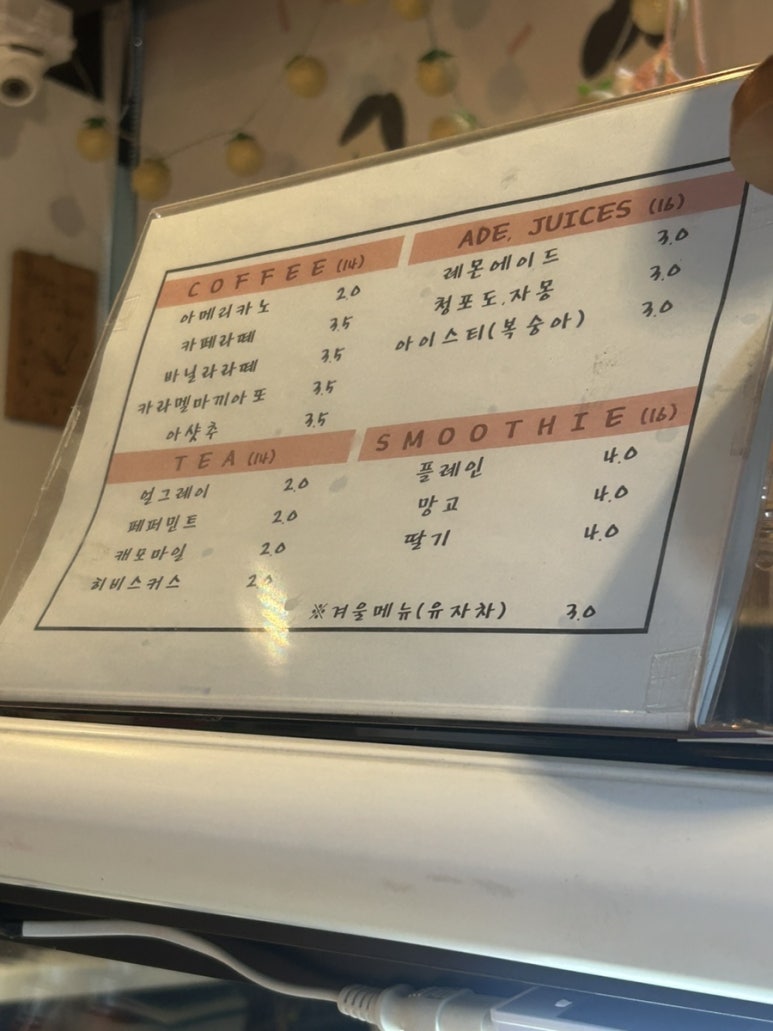 COFFEE (14)
아메리카노 2.0
카페라떼 3.5
바닐라라떼 3.5
카라멜마끼아또 3.5
아샷추 3.5
TEA (14)
얼그레이 2.0
페퍼민트 2.0
캐모마일 2.0
히비스커스 2.0
ADE, JUICES (16)
레몬에이드 3.0
청포도,자몽 3.0
아이스티(복숭아) 3.0
SMOOTHIE (16)
플레인 4.0
망고 4.0
딸기 4.0
※겨울메뉴(유자차) 3.0